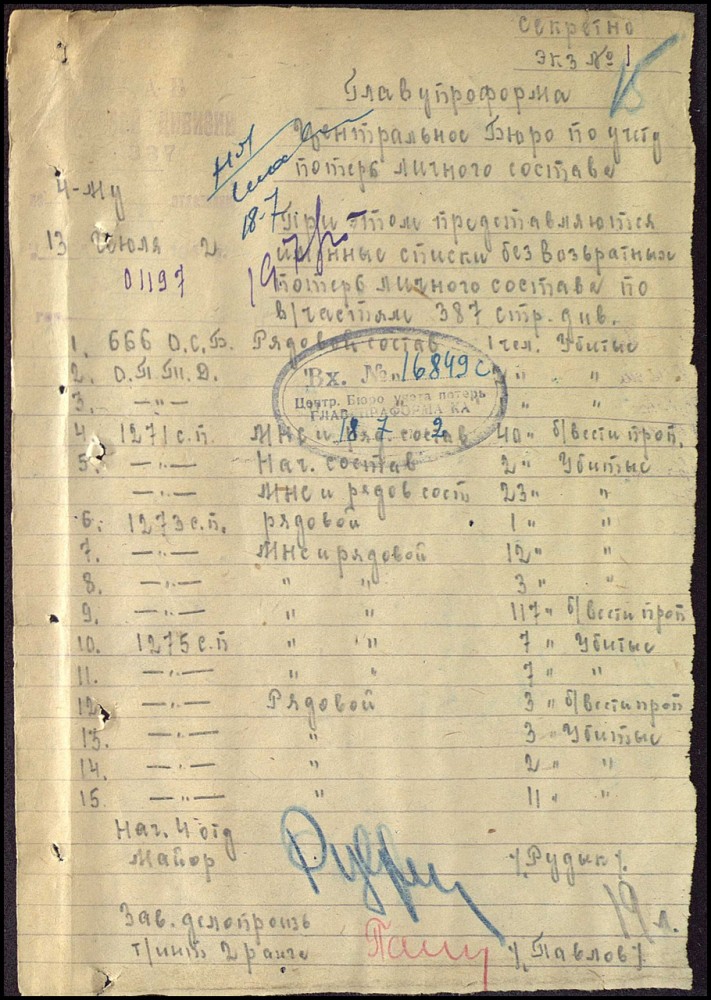 Секретно
Экз № 1
Главупроформа
Центральное Бюро по учету
потерь личного состава
4-му
18-7
При этом представляются
именные списки безвозвратных
потерь личного состава по
в/частям 387 стр. див.
13 Июля 2
01197
19.7
1. 666 О.С.Б. Рядовой состав 1 чел. Убитые
2. О.П.Т.Д. " "
3. —"—
Вх. № 16849с
Центр. Бюро учета потерь
ГЛАВУПРАФОРМА КА
18 7 2
4. 1271 с.п. МНС и ряд состав 40 " б/вести проп.
5. —"— Нач. состав 2 " Убитые
—"— МНС и рядов сост 23 " "
6. 1273 с.п. рядовой 1 " "
7. —"— МНС и рядовой 12 " "
8. —"— " " 3 " "
9. —"— " " 117 " б/вести проп
10. 1275 с.п " " 7 " Убитые
11. —"— " " 7 " "
12. —"— Рядовой 3 " б/вести проп
13. —"— " 3 Убитые
14. —"— " 2 " "
15. —"— " 11 " "
Нач. 4 отд
Майор /Рудык/.
19 л.
Зав. делопроизв
т/инт 2 ранга /Павлов/.